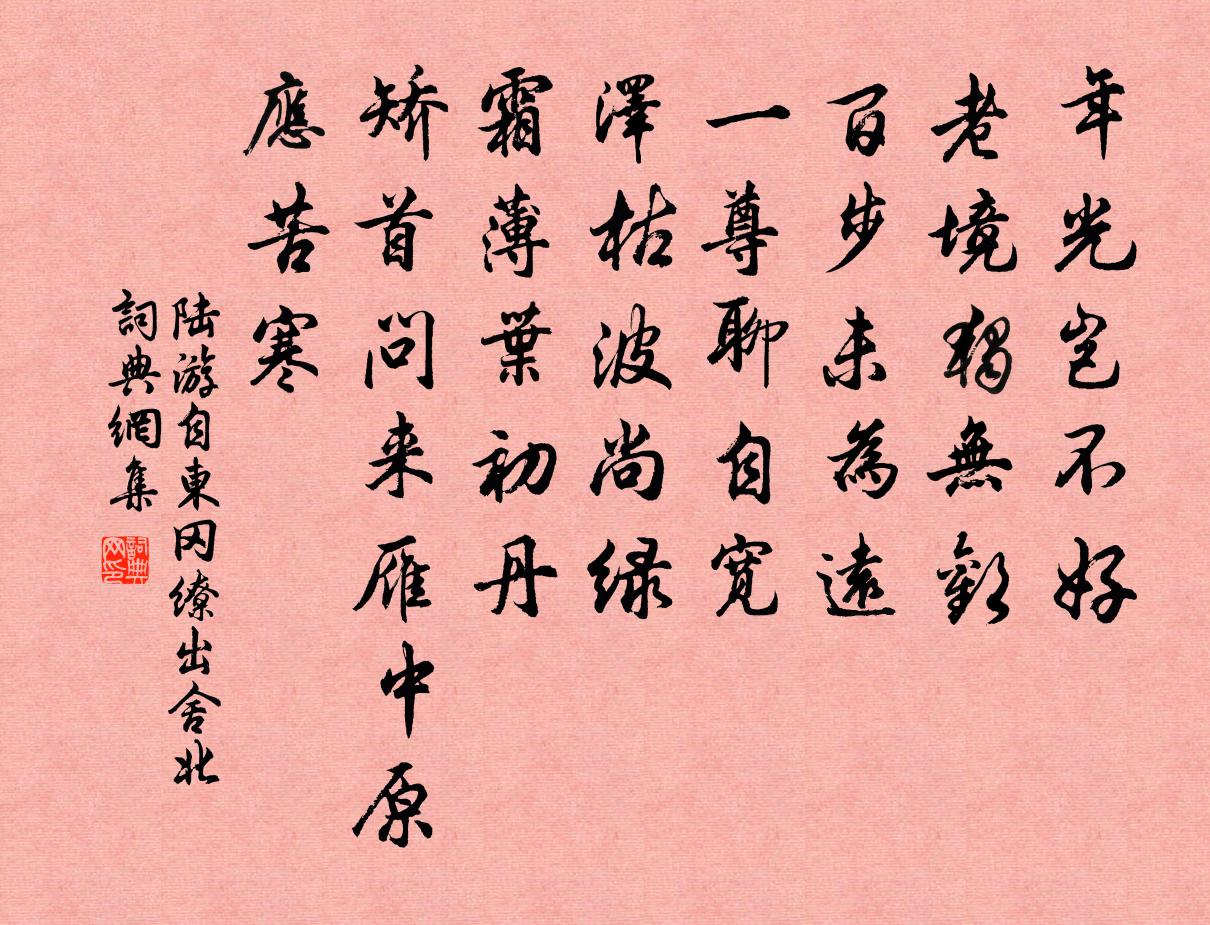 年光岂不好
老境獨無歡
百步未為遠
一尊聊自寬
澤枯波尚绿
霜薄葉初丹
矫首問来雁中原
應苦寒
陆游自東冈繚出舍北
詞典網集
詞典网印